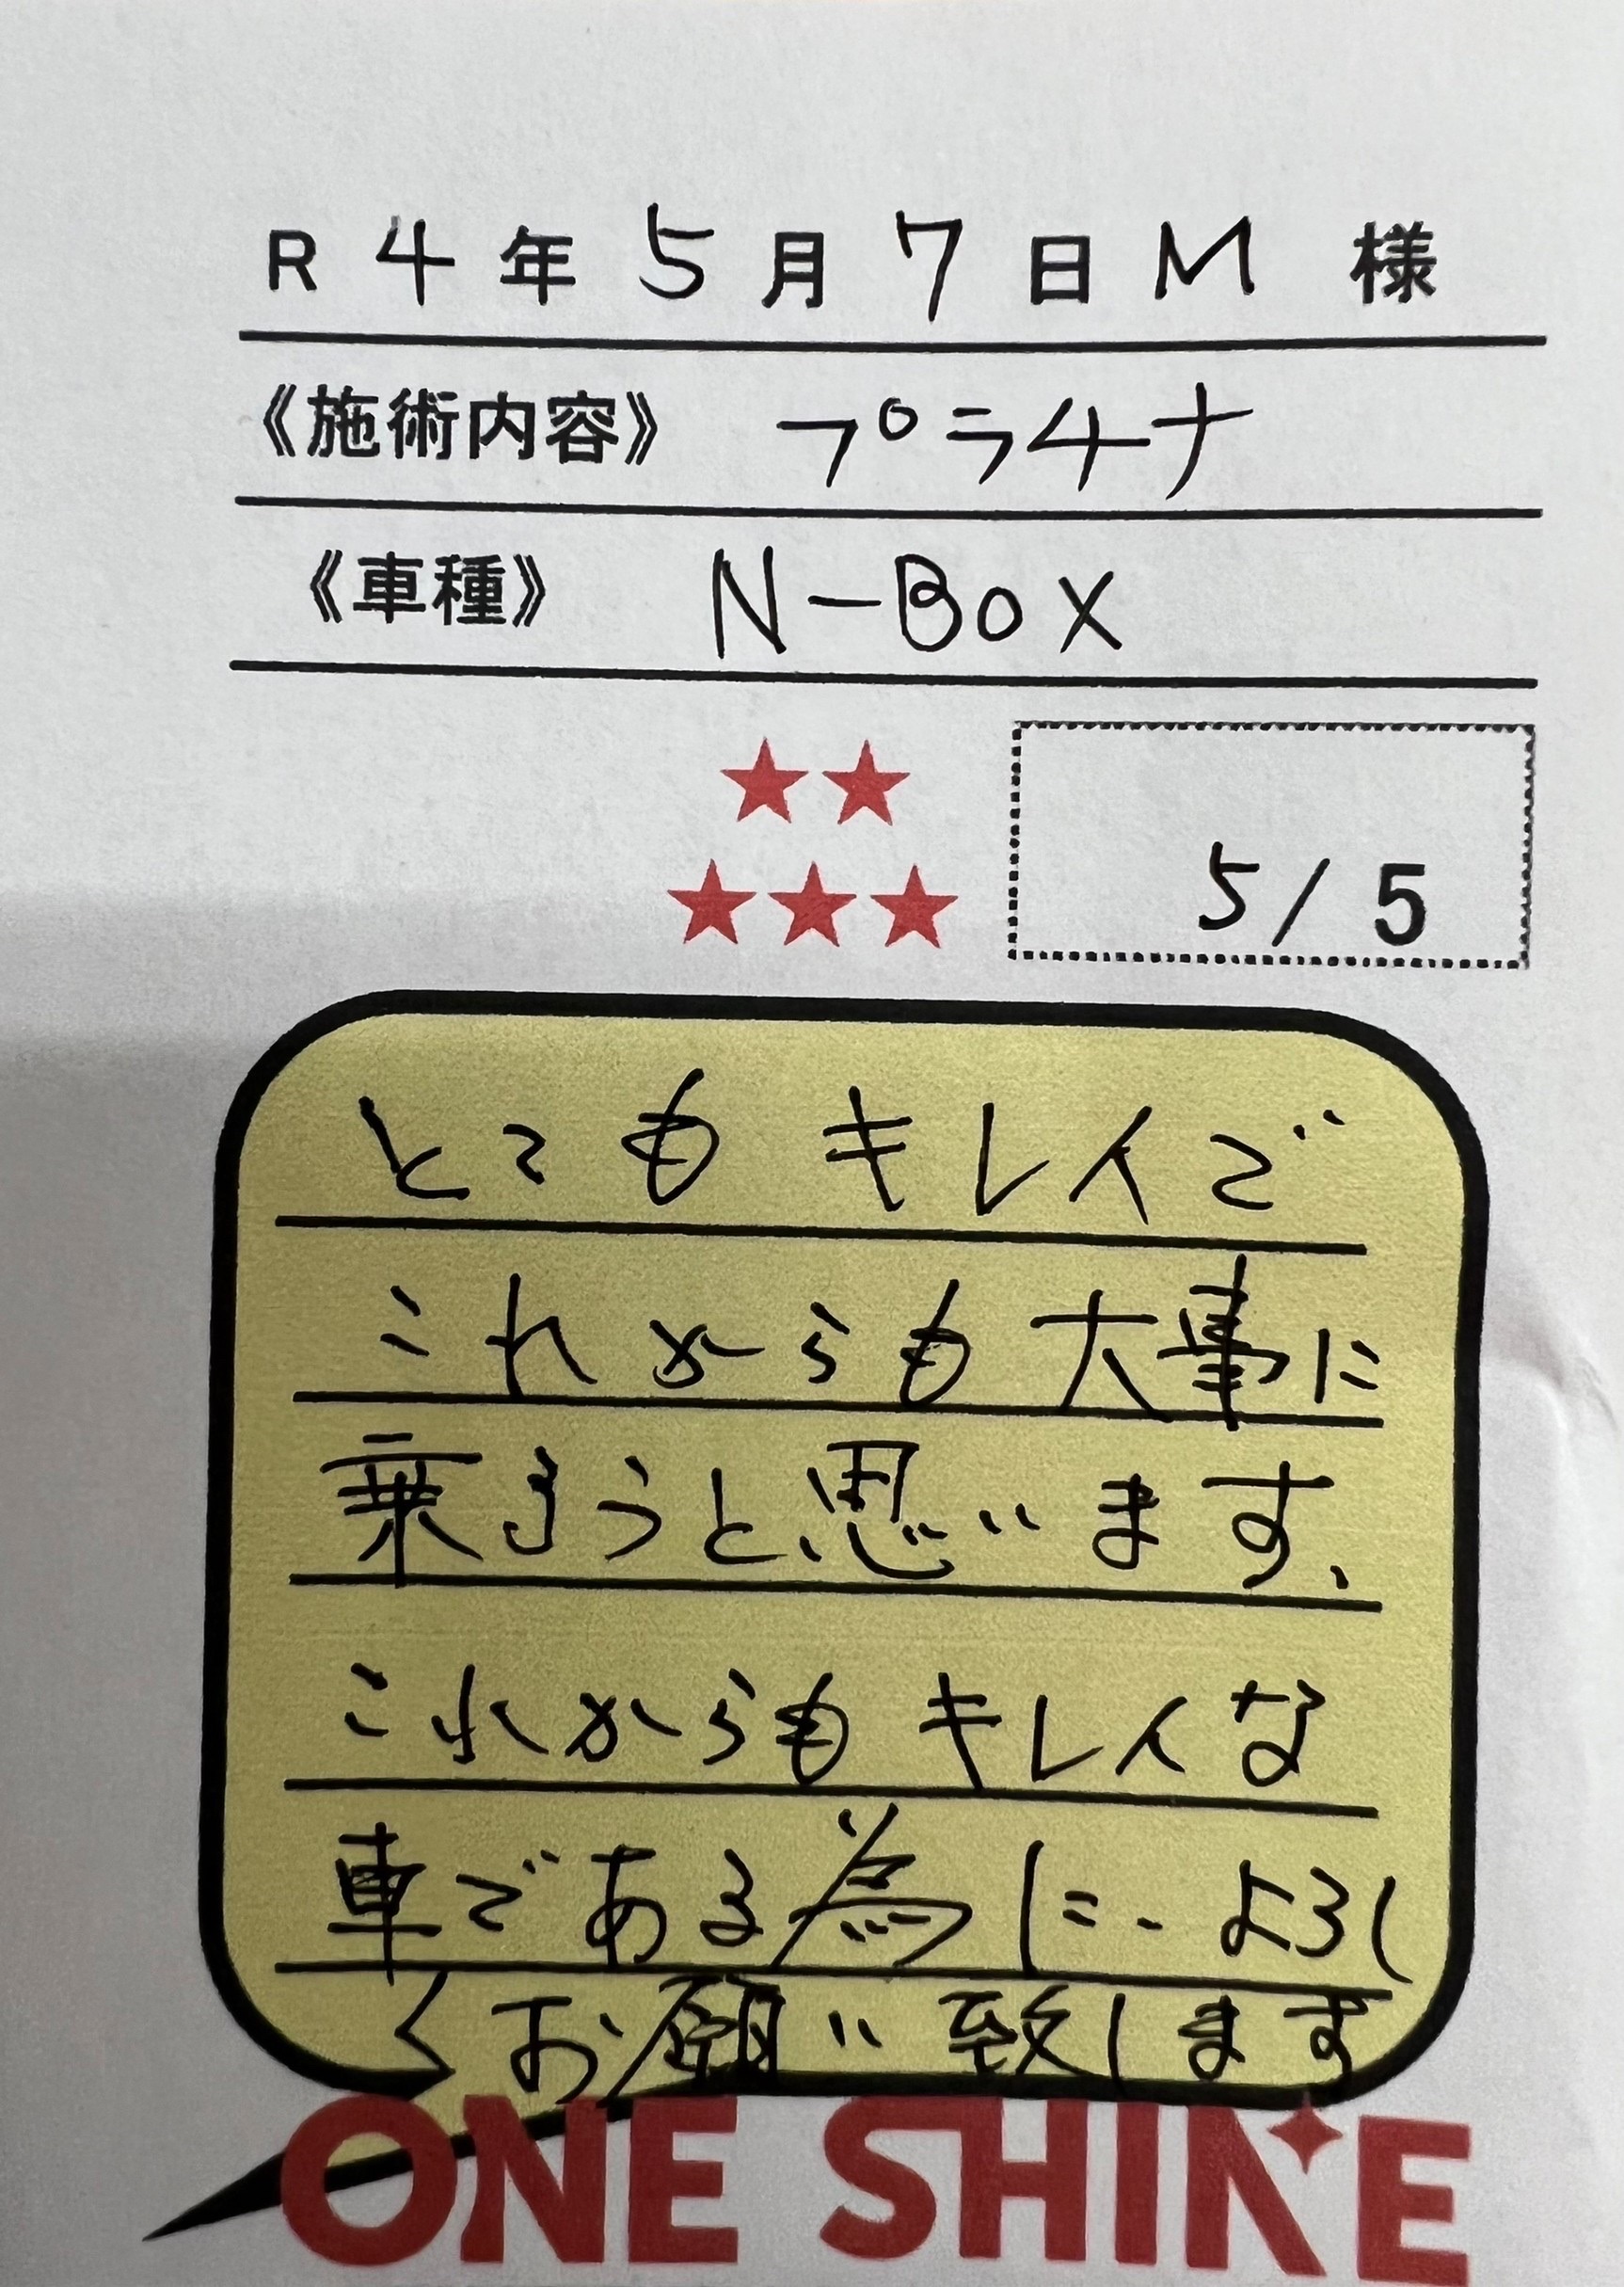 R 4 年 5 月 7 日 M 様
《施術内容》 プラチナ
《車種》 N-Box
★★
★★★
5/5
とてもキレイで
これからも大事に
乗ろうと思います、
これからもキレイな
車である為に、よろし
くお願い致します
ONE SHINE